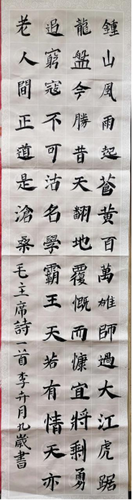 鍾山風雨起蒼黃百萬雄師過大江虎踞
龍盤今勝昔天翻地覆慨而慷宜將剩勇
追窮寇不可沽名學霸王天若有情天亦
老人間正道是滄桑毛主席詩一首李卉月九歲書